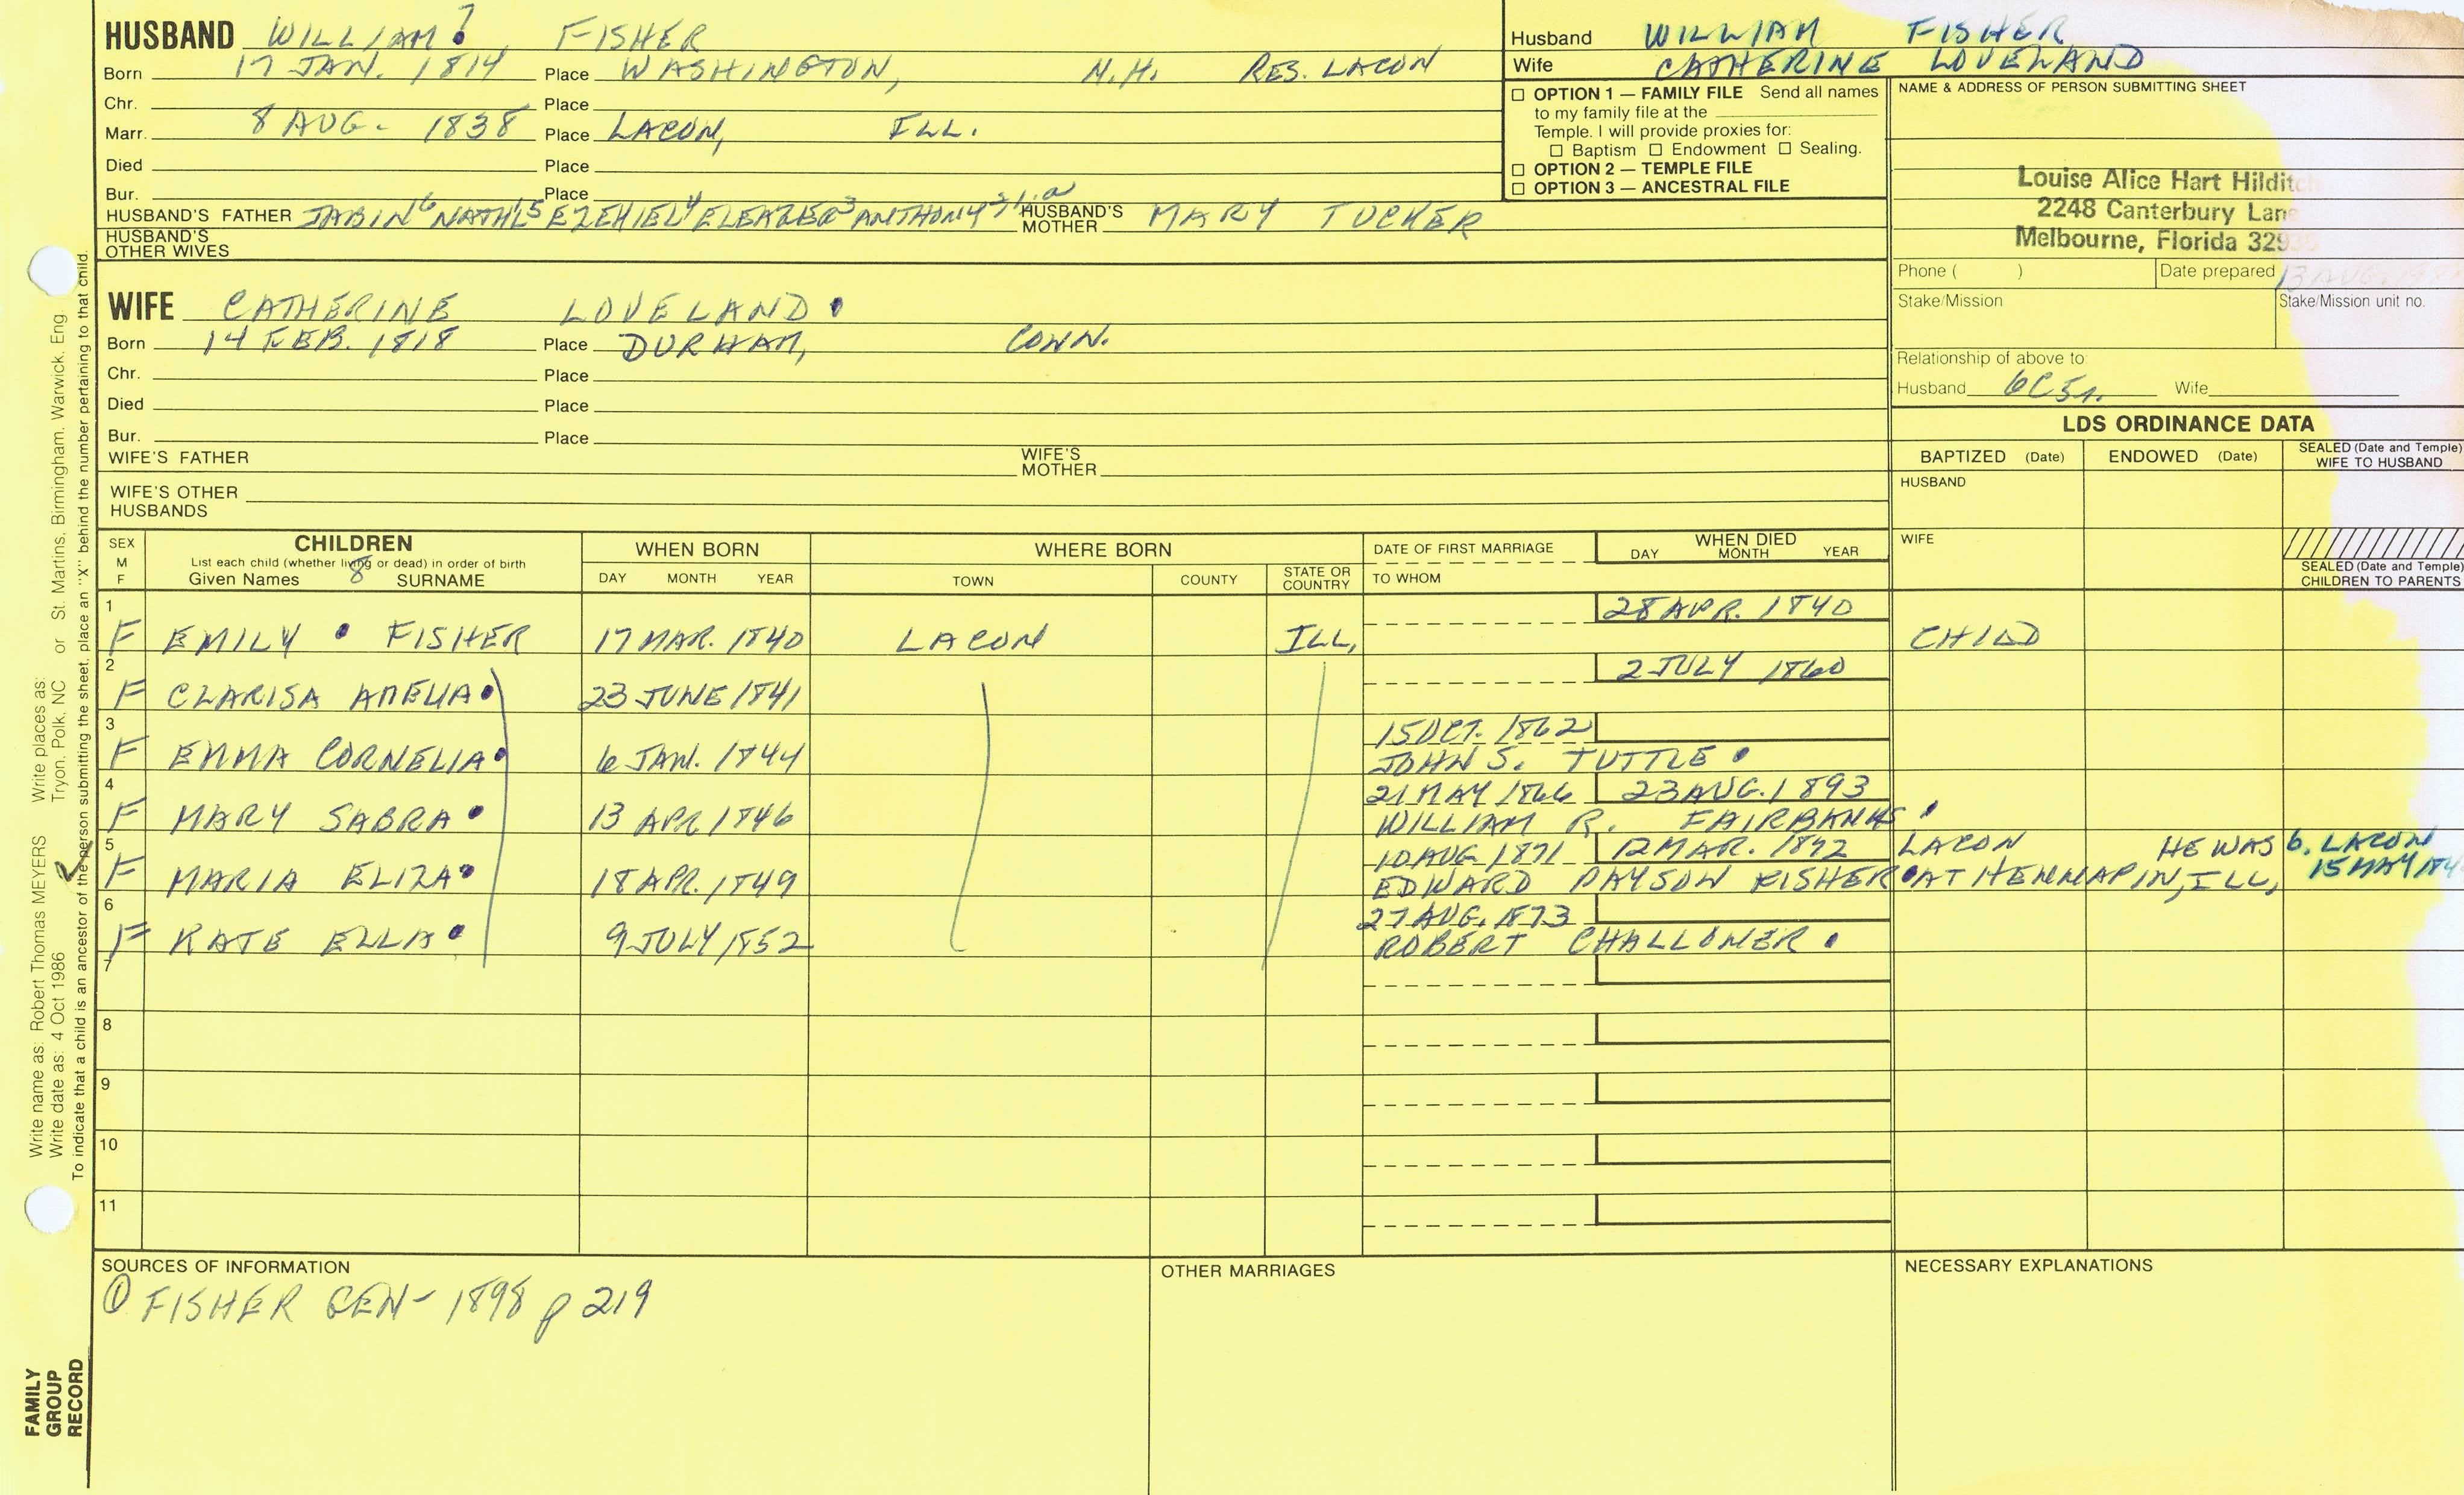 HUSBAND WILLIAM 7 FISHER
Born 17 JAN. 1814 Place WASHINGTON, N.H. RES. LACON
Chr. Place
Marr. 8 AUG. 1838 Place LACON, ILL.
Died Place
Bur. Place
HUSBAND'S FATHER JABIN6 NATH'L5 EZEKIEL4 ELEAZER3 ANTHONY2,1,a HUSBAND'S MOTHER MARY TUCKER
HUSBAND'S OTHER WIVES
Husband WILLIAM FISHER
Wife CATHERINE LOVELAND
☐ OPTION 1 — FAMILY FILE Send all names
to my family file at the
Temple. I will provide proxies for:
☐ Baptism ☐ Endowment ☐ Sealing.
☐ OPTION 2 — TEMPLE FILE
☐ OPTION 3 — ANCESTRAL FILE
NAME & ADDRESS OF PERSON SUBMITTING SHEET
Louise Alice Hart Hilditch
2248 Canterbury Lane
Melbourne, Florida 329
Phone ( ) Date prepared 13 AUG.
Stake/Mission Stake/Mission unit no.
Relationship of above to:
Husband 6C5r. Wife
WIFE CATHERINE LOVELAND
Born 14 FEB. 1818 Place DURHAM, CONN.
Chr. Place
Died Place
Bur. Place
WIFE'S FATHER WIFE'S MOTHER
WIFE'S OTHER HUSBANDS
LDS ORDINANCE DATA
BAPTIZED (Date) ENDOWED (Date) SEALED (Date and Temple) WIFE TO HUSBAND
HUSBAND
WIFE
SEALED (Date and Temple) CHILDREN TO PARENTS
SEX M F CHILDREN WHEN BORN WHERE BORN DATE OF FIRST MARRIAGE WHEN DIED
List each child (whether living or dead) in order of birth DAY MONTH YEAR
Given Names 8 SURNAME DAY MONTH YEAR TOWN COUNTY STATE OR COUNTRY TO WHOM
1 28 APR. 1840
F EMILY FISHER 17 MAR. 1840 LACON ILL. CHILD
2 2 JULY 1860
F CLARISA AMELIA 23 JUNE 1841
3 15 OCT. 1862
F EMMA CORNELIA 6 JAN. 1844 JOHN S. TUTTLE
4 21 MAY 1866 23 AUG. 1893
F MARY SABRA 13 APR 1846 WILLIAM R. FAIRBANKS
5 10 AUG 1871 12 MAR. 1892 LACON HE WAS b. LACON
F MARIA ELIZA 18 APR. 1849 EDWARD PAYSON FISHER AT HENNAPIN, ILL, 15 MAY 184
6 27 AUG. 1873
F KATE ELLA 9 JULY 1852 ROBERT CHALLONER
7
8
9
10
11
SOURCES OF INFORMATION OTHER MARRIAGES NECESSARY EXPLANATIONS
① FISHER GEN - 1898 p 219
Write name as: Robert Thomas MEYERS Write places as:
Write date as: 4 Oct 1986 Tryon, Polk, NC or St. Martins, Birmingham, Warwick, Eng.
To indicate that a child is an ancestor of the person submitting the sheet, place an "X" behind the number pertaining to that child.
FAMILY
GROUP
RECORD